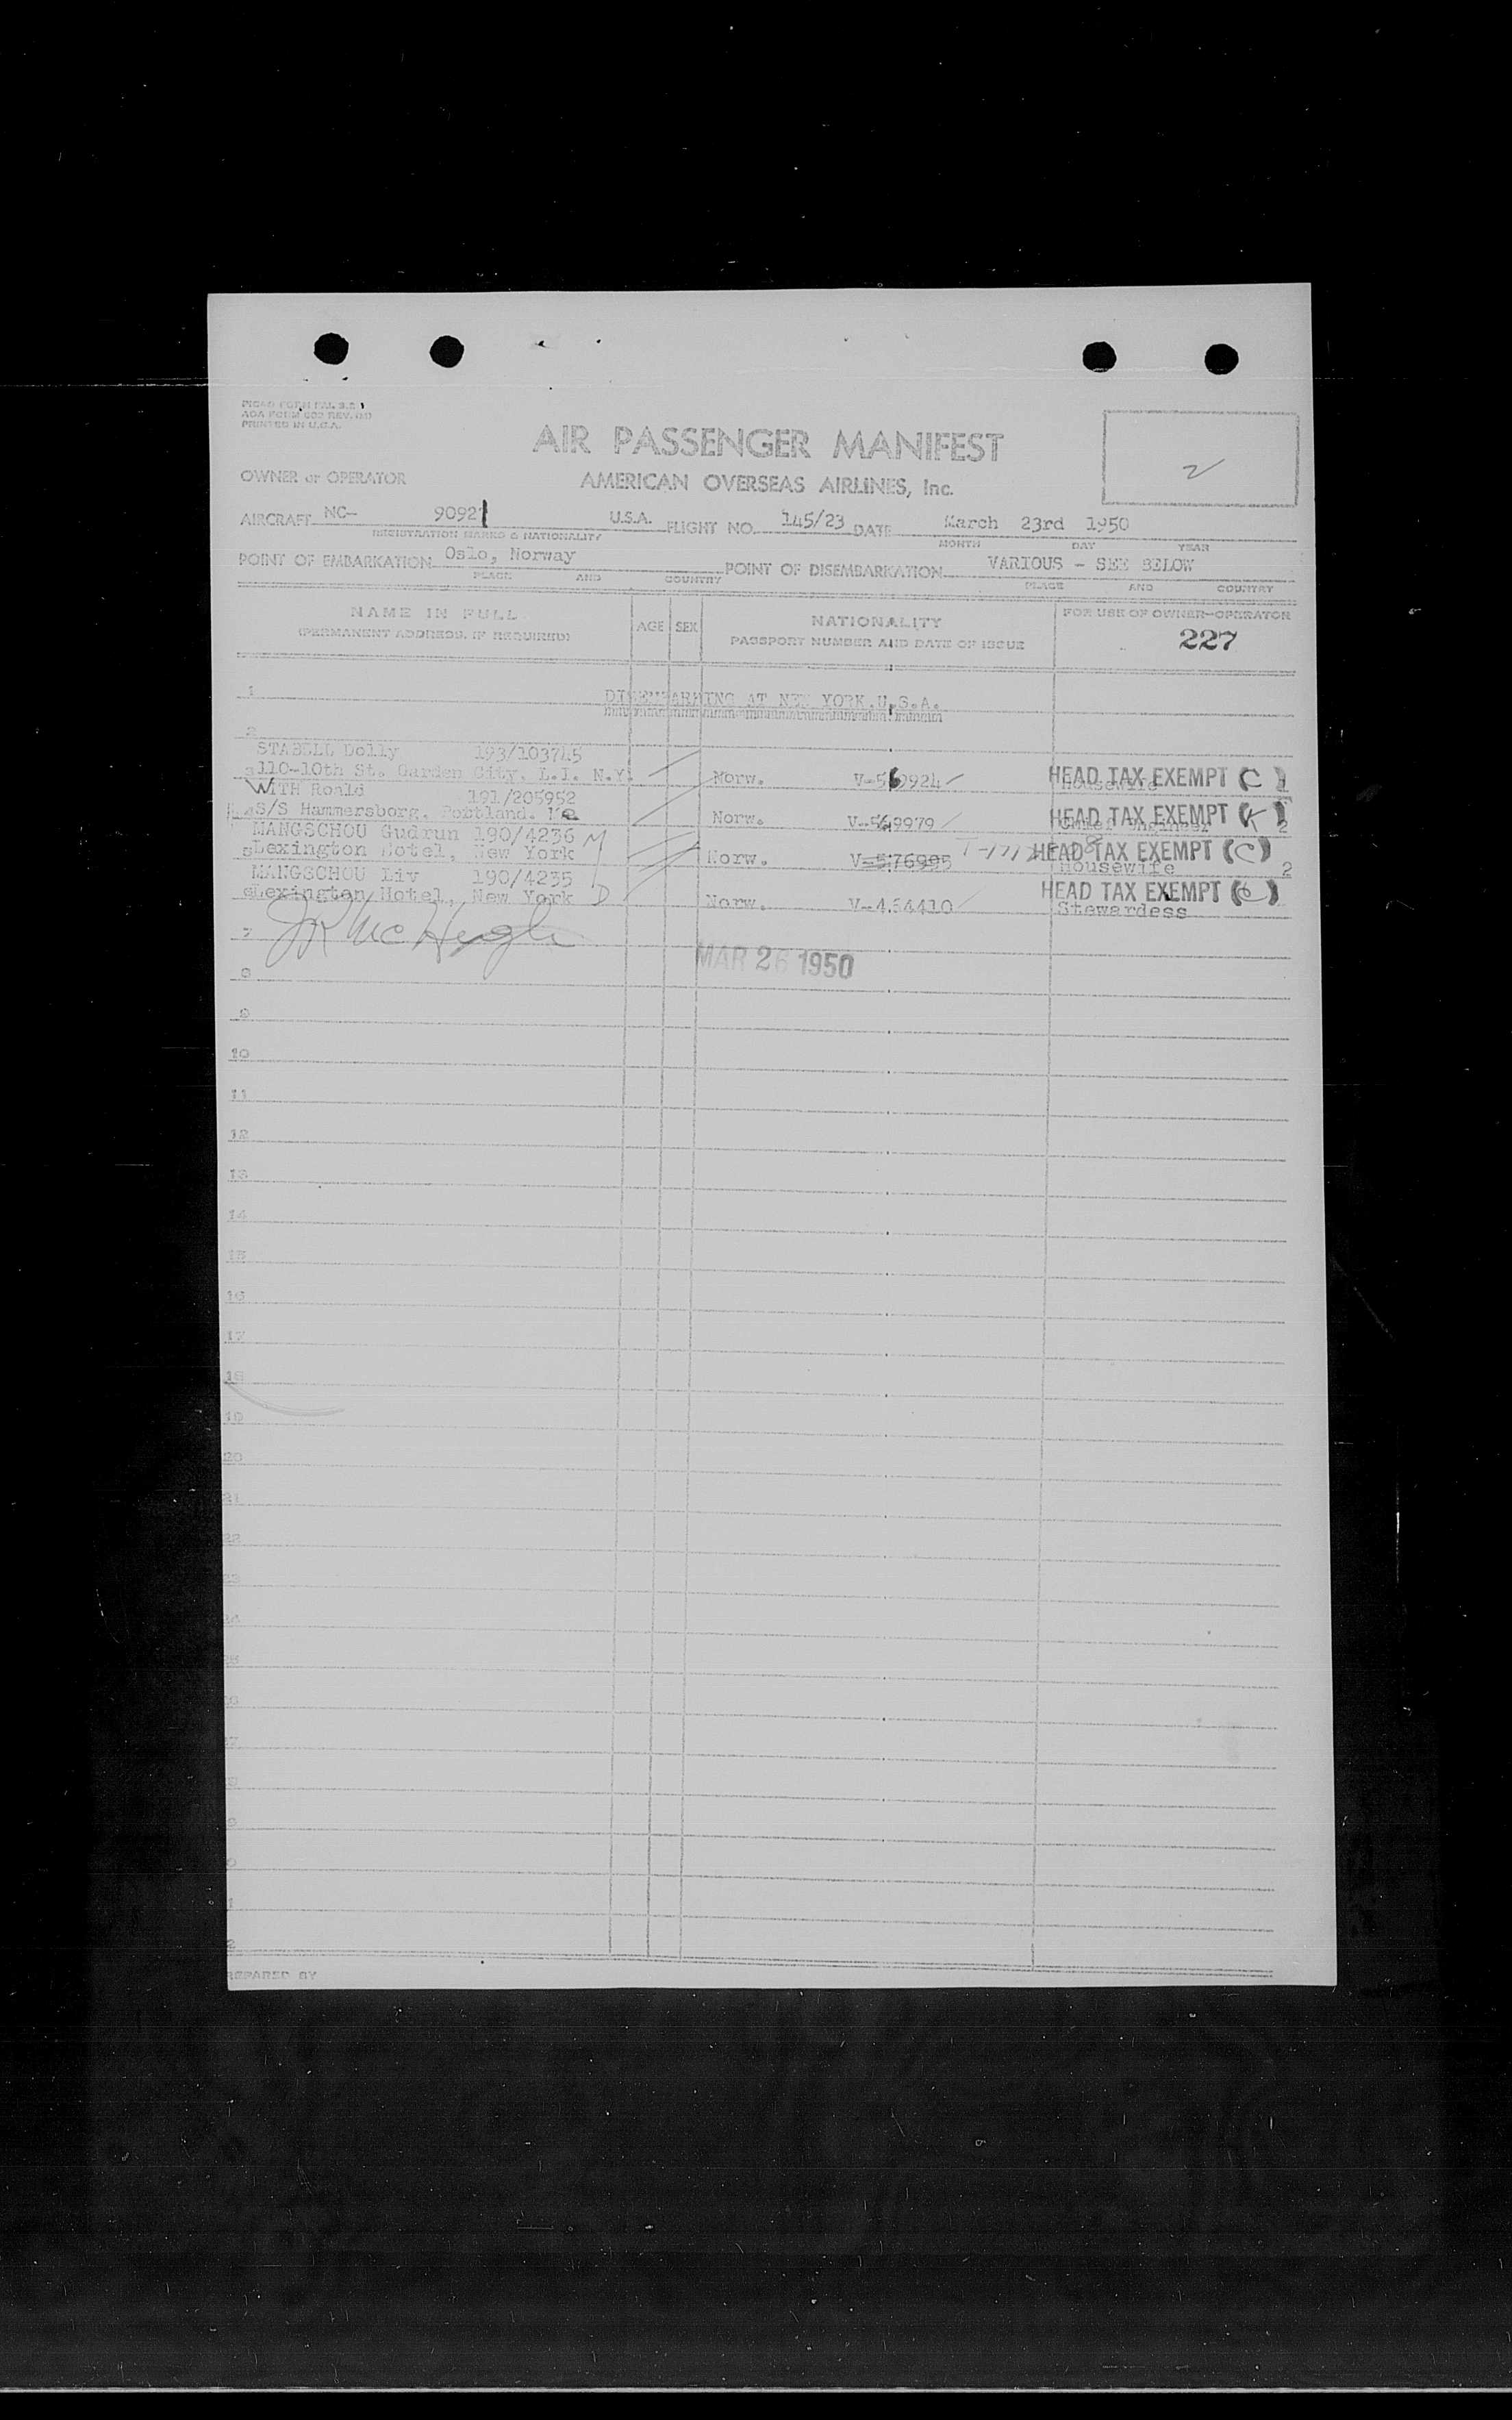 PICAO FORM FAL 3.2
AOA FORM 602 REV.
PRINTED IN U.S.A.
AIR PASSENGER MANIFEST
2
OWNER or OPERATOR
AMERICAN OVERSEAS AIRLINES, Inc.
AIRCRAFT NC- 90921 U.S.A. FLIGHT NO. 145/23 DATE March 23rd 1950
REGISTRATION MARKS & NATIONALITY MONTH DAY YEAR
POINT OF EMBARKATION Oslo, Norway POINT OF DISEMBARKATION VARIOUS - SEE BELOW
PLACE AND COUNTRY PLACE AND COUNTRY
NAME IN FULL AGE SEX NATIONALITY FOR USE OF OWNER-OPERATOR
(PERMANENT ADDRESS, IF REQUIRED) PASSPORT NUMBER AND DATE OF ISSUE 227
1 DISEMBARKING AT NEW YORK.U.S.A.
2
STABELL Dolly 193/103715
3 110-10th St. Garden City, L.I. N.Y. Norw. V-560924 HEAD TAX EXEMPT (C)
Housewife
WITH Roald 191/205952
4 S/S Hammersborg, Portland. Me Norw. V-569979 HEAD TAX EXEMPT (K)
2
MANGSCHOU Gudrun 190/4236 M
5 Lexington Hotel, New York Norw. V-576995 HEAD TAX EXEMPT (C)
Housewife 2
MANGSCHOU Liv 190/4235
6 Lexington Hotel, New York D Norw. V-454410 HEAD TAX EXEMPT (C)
Stewardess
7 McHugh
MAR 26 1950
8
9
10
11
12
13
14
15
16
17
18
19
20
21
22
23
PREPARED BY